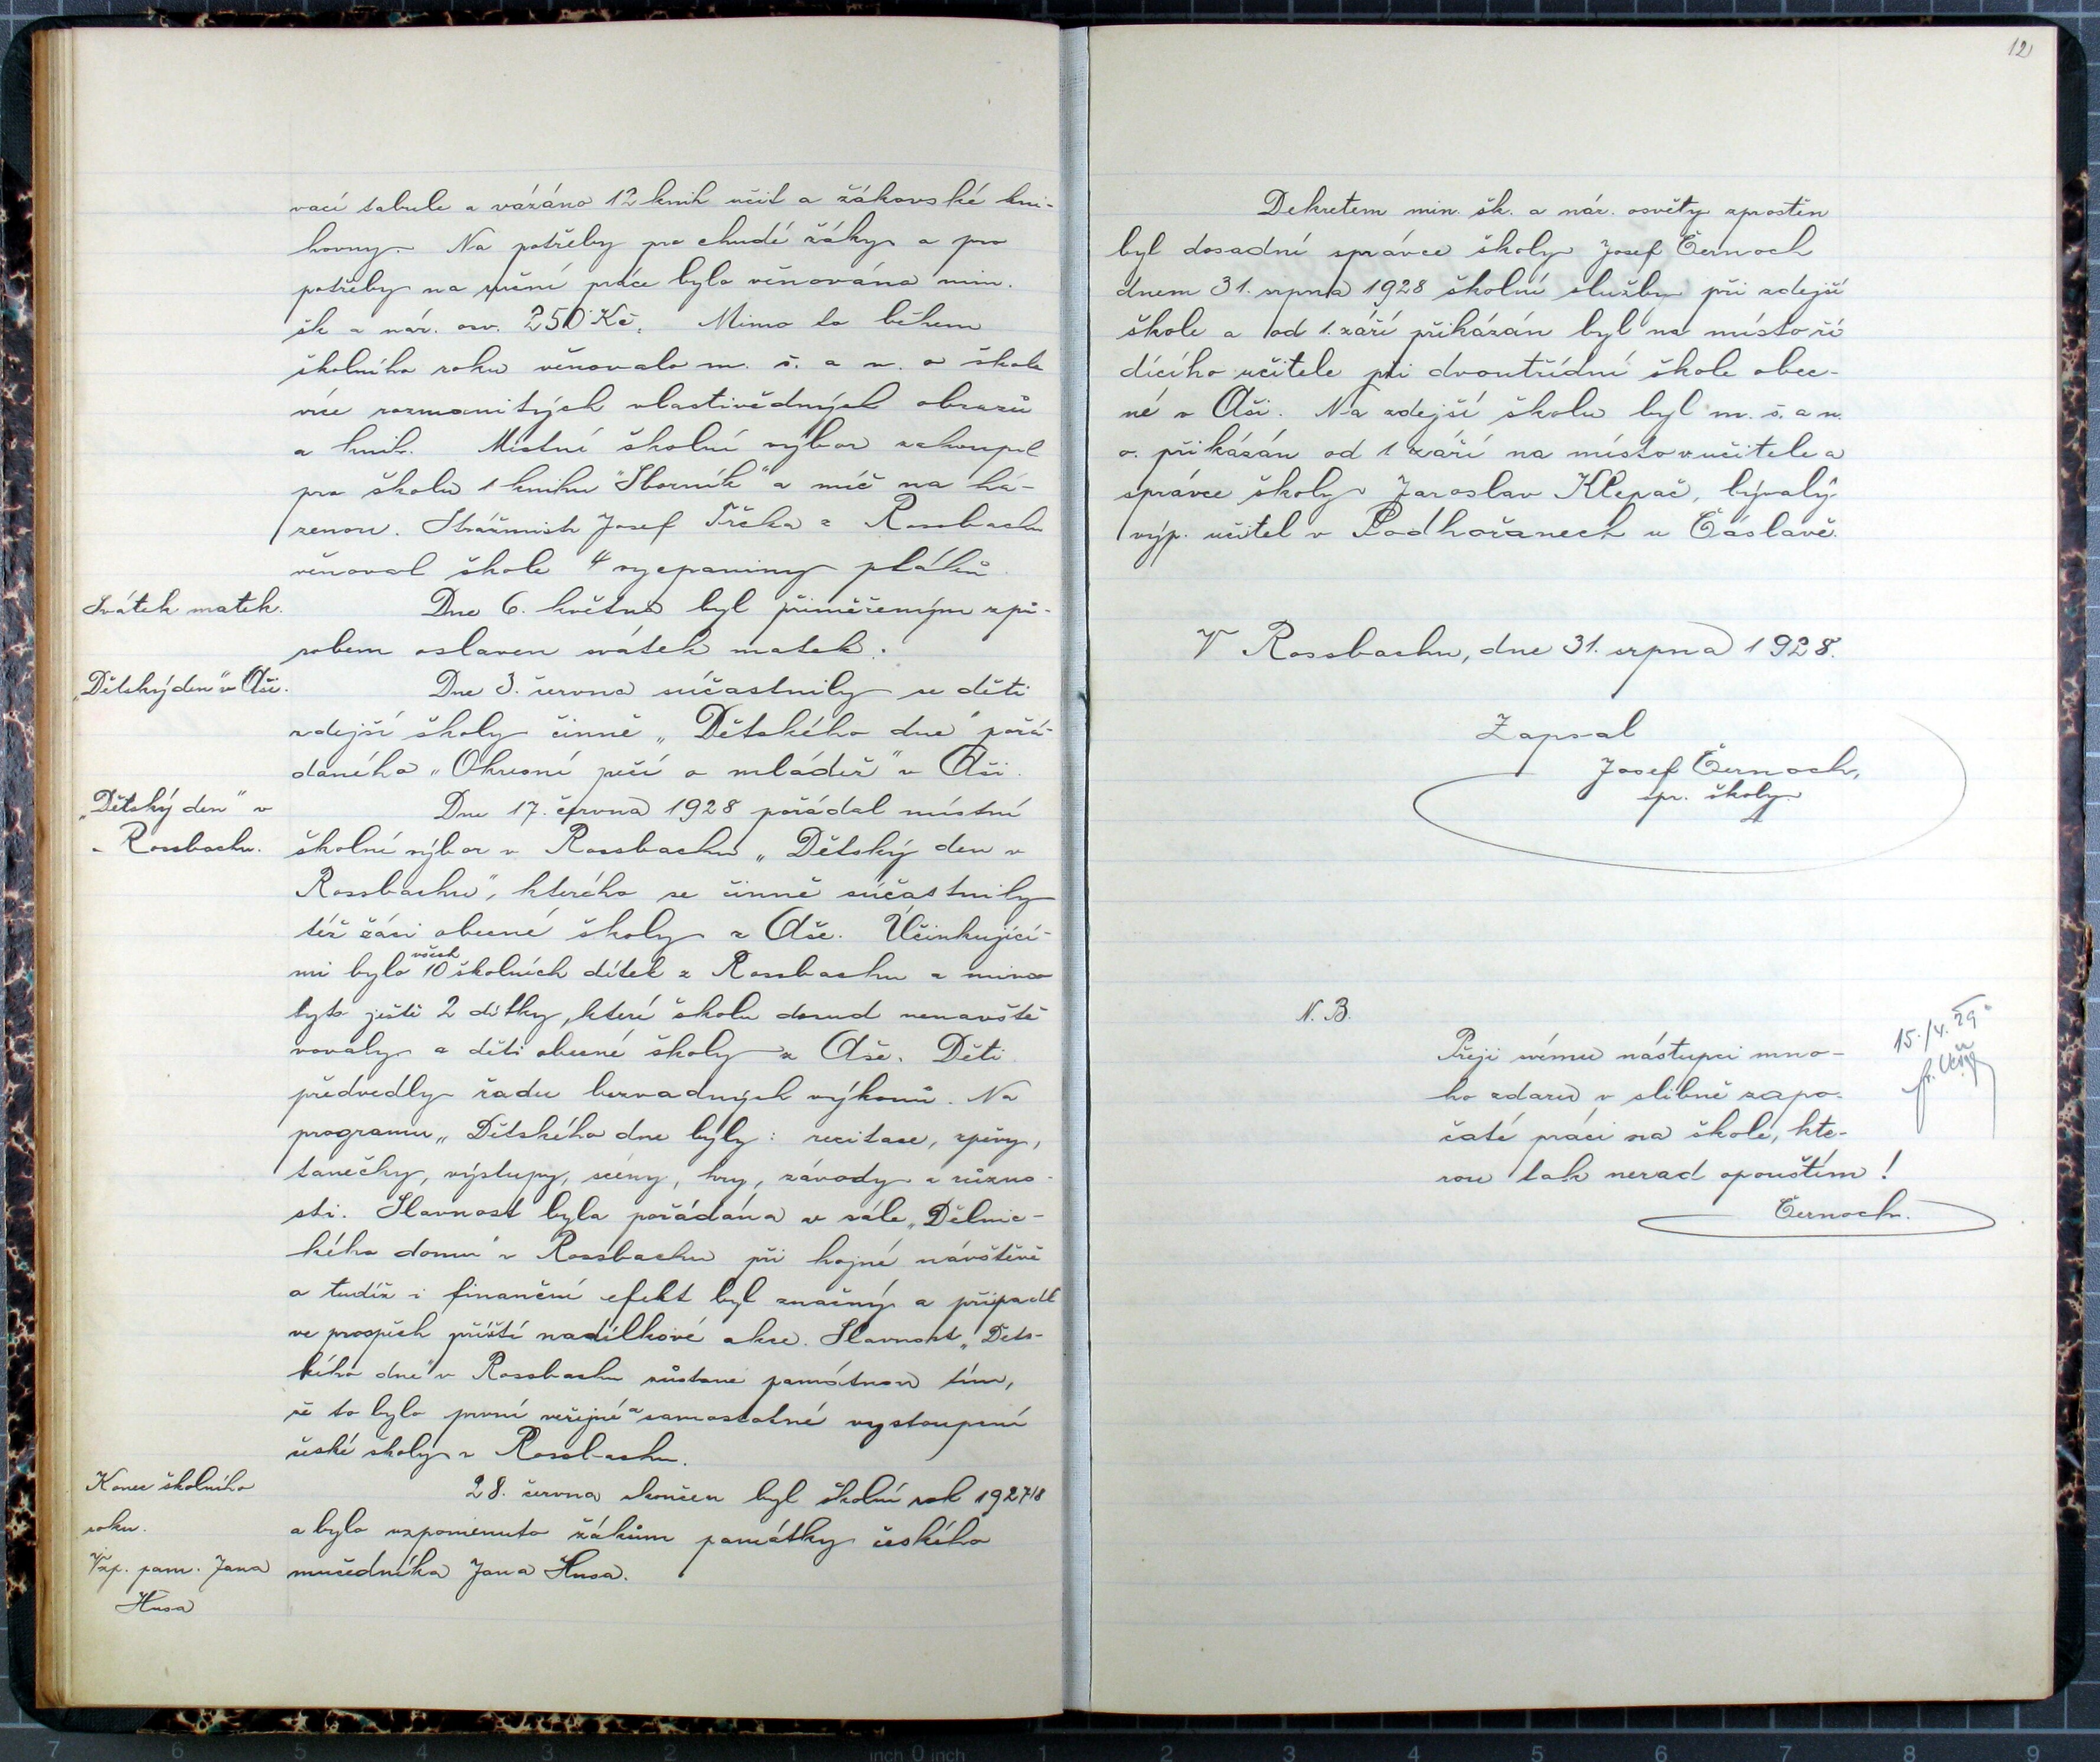 vací tabule a vázáno 12 knih učit a žákovské kni-
hovny. Na potřeby pro chudé žáky a pro
potřeby na ruční práce bylo věnováno min.
šk a nár. osv. 250 Kč. Mimo to během
školního roku věnovalo m. š. a n. o škole
více rozmanitých vlastivědných obrazů
a knih. Místní školní výbor zakoupil
pro školu 1 knihu "Sborník" a míč na há-
zenou. Strážmistr Josef Trčka z Rossbachu
věnoval škole 4 vycpaniny ptáků.
Svátek matek.
Dne 6. května byl přiměřeným způ-
sobem oslaven svátek matek.
„Dětský den" v Aši.
Dne 3. června súčastnily se děti
zdejší školy činně „Dětského dne" pořá-
daného „Okresní péčí o mládež" v Aši.
„Dětský den" v
Rossbachu.
Dne 17. června 1928 pořádal místní
školní výbor v Rossbachu „Dětský den v
Rossbachu", kterého se činně súčastnily
též žáci obecné školy z Aše. Účinkující-
mi bylo všech 10 školních dítek z Rossbachu a mimo
tyto ještě 2 dítky, které školu dosud nenavště
vovaly a děti obecné školy z Aše. Děti
předvedly řadu bezvadných výkonů. Na
programu „Dětského dne byly: recitace, zpěvy,
tanečky, výstupy, scény, hry, závody a různo-
sti. Slavnost byla pořádána v sále „Dělnic-
kého domu" v Rossbachu při hojné návštěvě
a tudíž i finanční efekt byl značný a připadl
ve prospěch příští nadílkové akce. Slavnost „Děts-
kého dne" v Rossbachu zůstane památnou tím,
že to bylo první veřejné a samostatné vystoupení
české školy v Rossbachu.
Konec školního
roku.
28. června skončen byl školní rok 1927/8
a bylo vzpomenuto žákům památky českého
Vzp. pam. Jana
Husa
mučedníka Jana Husa.
12
Dekretem min. šk. a nár. osvěty zproštěn
byl dosadní správce školy Josef Černoch
dnem 31. srpna 1928 školní služby při zdejší
škole a od 1. září přikázán byl na místo ří
dícího učitele při dvoutřídní škole obec-
né v Aši. Na zdejší školu byl m. š. a n.
o. přikázán od 1 září na místo učitele a
správce školy Jaroslav Klepač, bývalý
výp. učitel v Podhořanech u Čáslavě.
V Rossbachu, dne 31. srpna 1928.
Zapsal
Josef Černoch,
spr. školy.
N. B.
Přeji svému nástupci mno-
ho zdaru v slibně zapo-
čaté práci na škole, kte-
rou tak nerad opouštím!
Černoch.
15./4. 29